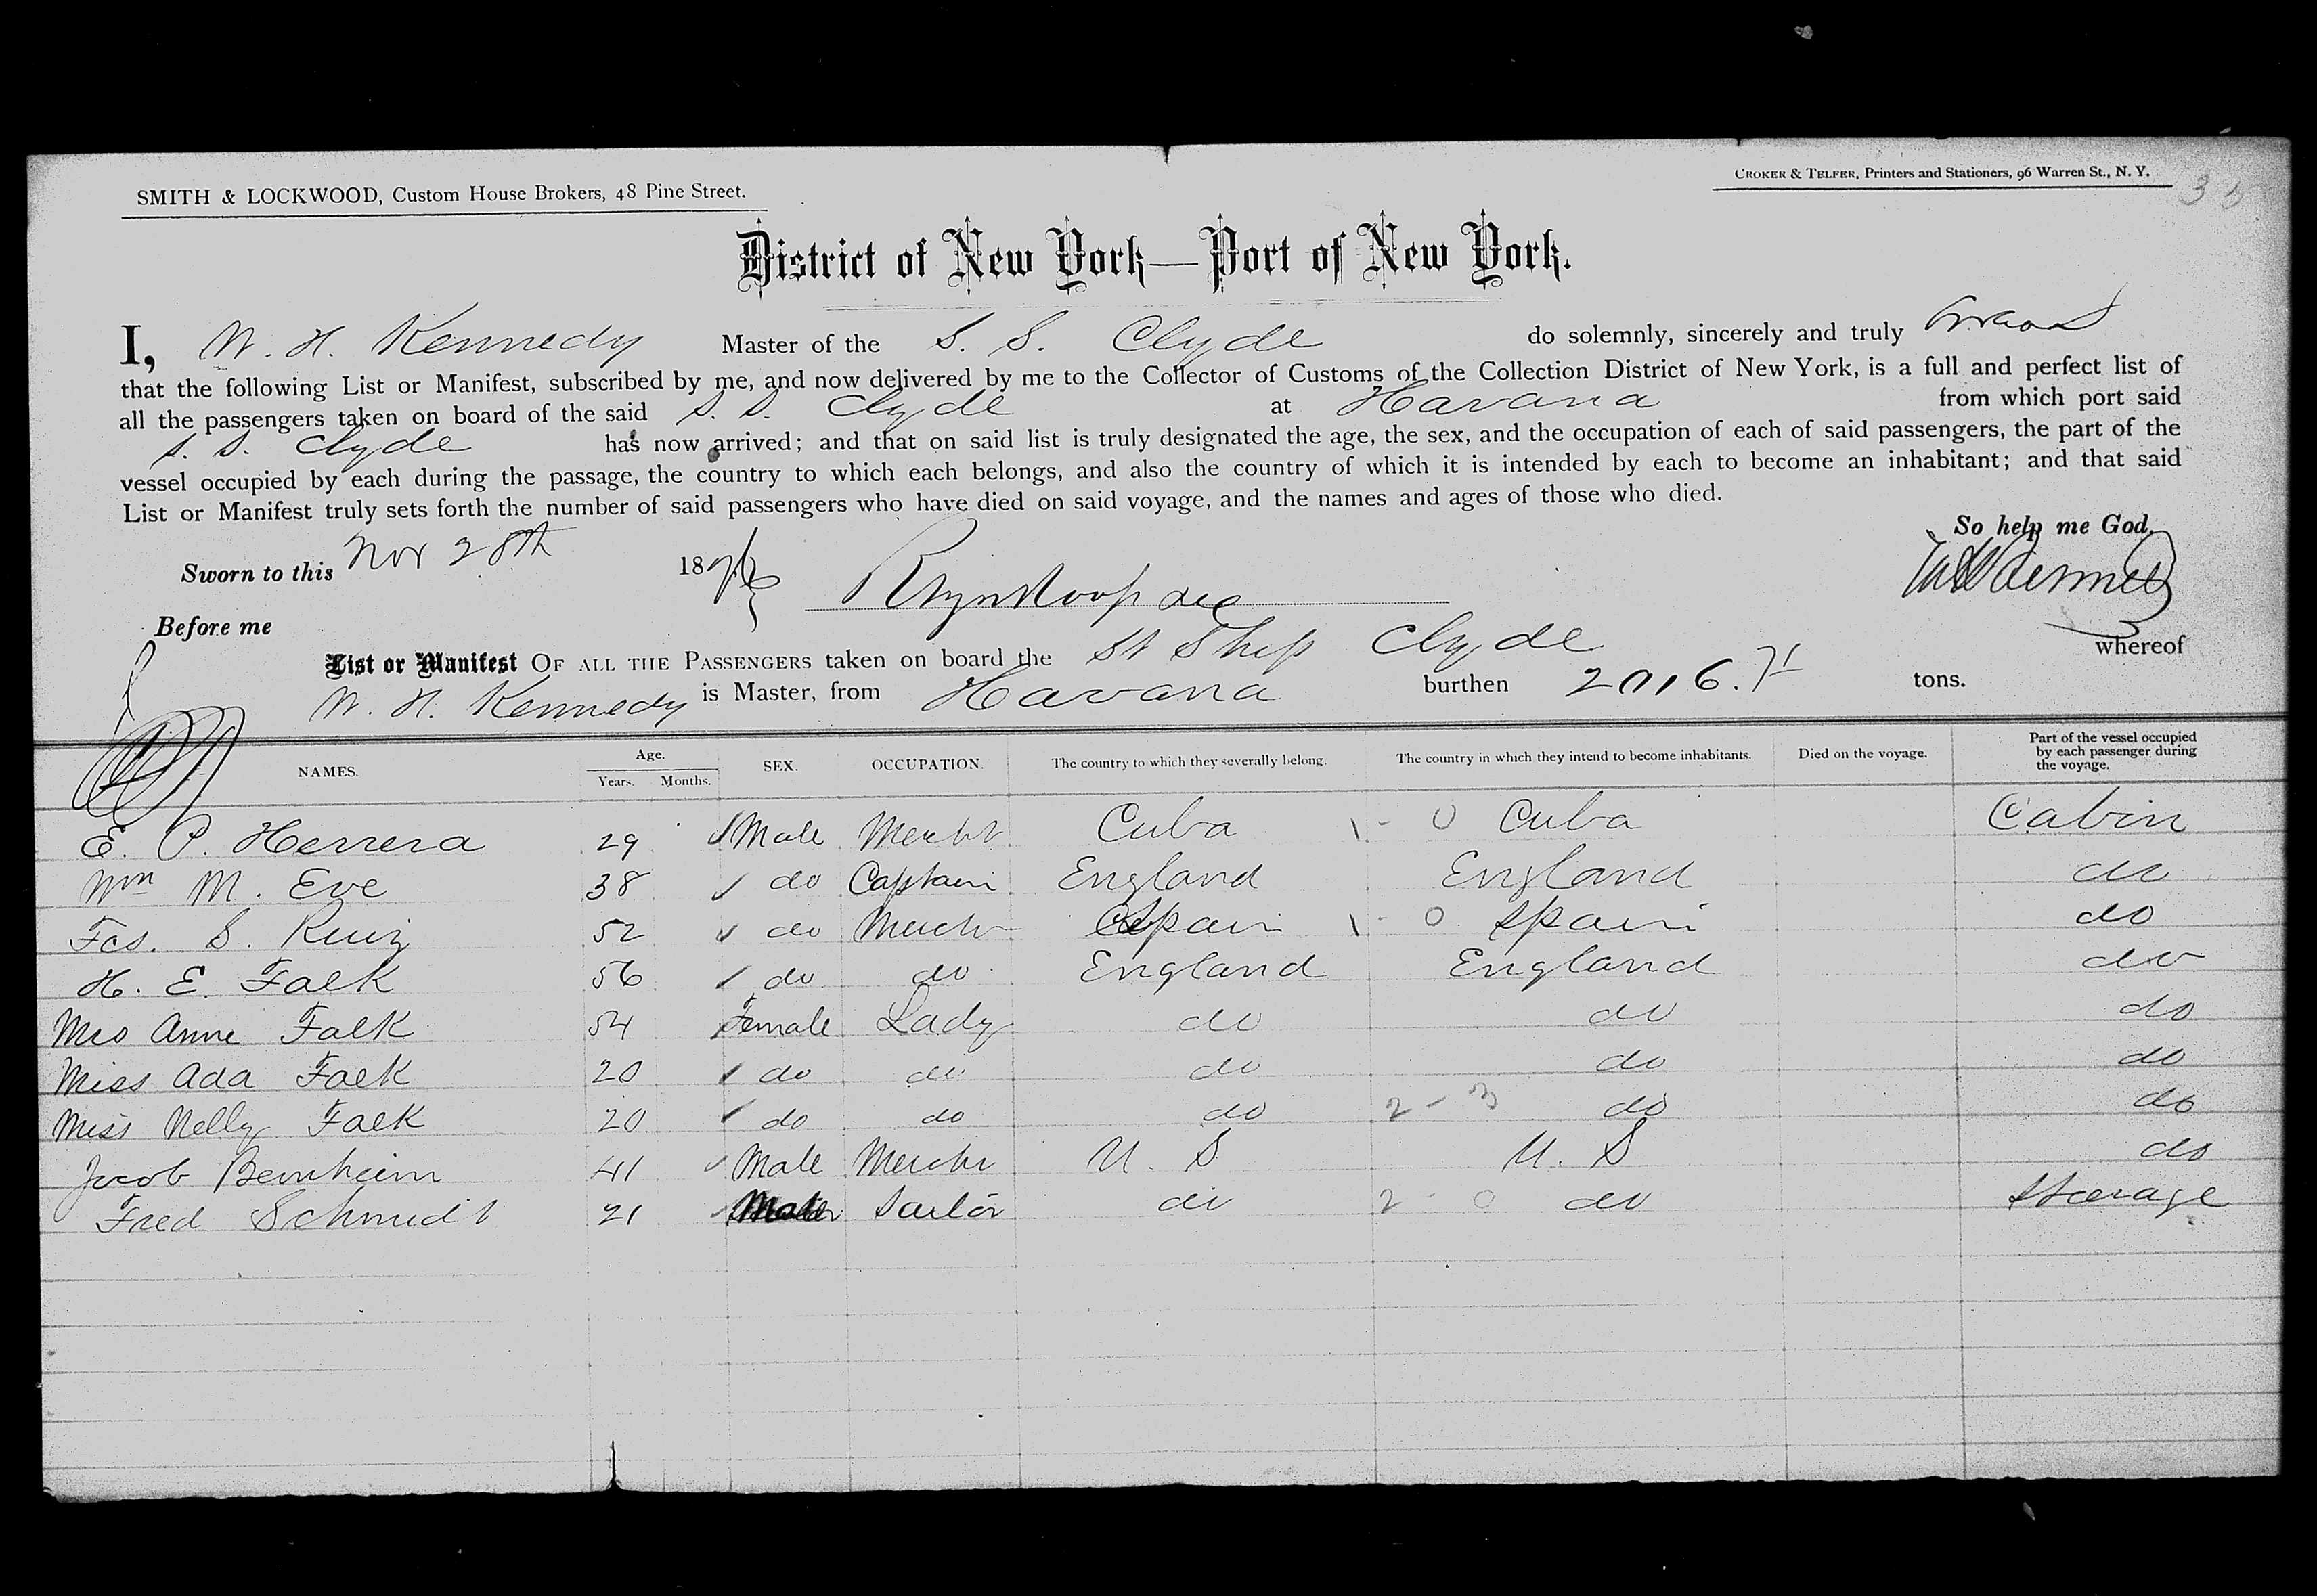 SMITH & LOCKWOOD, Custom House Brokers, 48 Pine Street.
CROKER & TELFER, Printers and Stationers, 96 Warren St., N. Y.
District of New York—Port of New York.
I, W. H. Kennedy Master of the S. S. Clyde do solemnly, sincerely and truly swear
that the following List or Manifest, subscribed by me, and now delivered by me to the Collector of Customs of the Collection District of New York, is a full and perfect list of
all the passengers taken on board of the said S. S. Clyde at Havana from which port said
S. S. Clyde has now arrived; and that on said list is truly designated the age, the sex, and the occupation of each of said passengers, the part of the
vessel occupied by each during the passage, the country to which each belongs, and also the country of which it is intended by each to become an inhabitant; and that said
List or Manifest truly sets forth the number of said passengers who have died on said voyage, and the names and ages of those who died.
So help me God.
Sworn to this Nov 28th 187
Before me
List or Manifest OF ALL THE PASSENGERS taken on board the St Ship Clyde whereof
W. H. Kennedy is Master, from Havana burthen tons.
NAMES. Age. Years. Months. SEX. OCCUPATION. The country to which they severally belong. The country in which they intend to become inhabitants. Died on the voyage. Part of the vessel occupied by each passenger during the voyage.
E. P. Herrera 29 Male Mercht Cuba 1 - 0 Cuba Cabin
Wm M. Eve 38 do Captain England England do
Fcs. S. Ruiz 52 do Mercht Spain 1 - 0 Spain do
H. E. Falk 56 do do England England do
Mrs Anne Falk 54 Female Lady do do do
Miss Ada Falk 20 do do do do do
Miss Nelly Falk 20 do do do 2 - 3 do do
Jacob Bernheim 41 Male Mercht U. S U. S do
Fred Schmidt 21 Male Sailor do 2 - 0 do Steerage